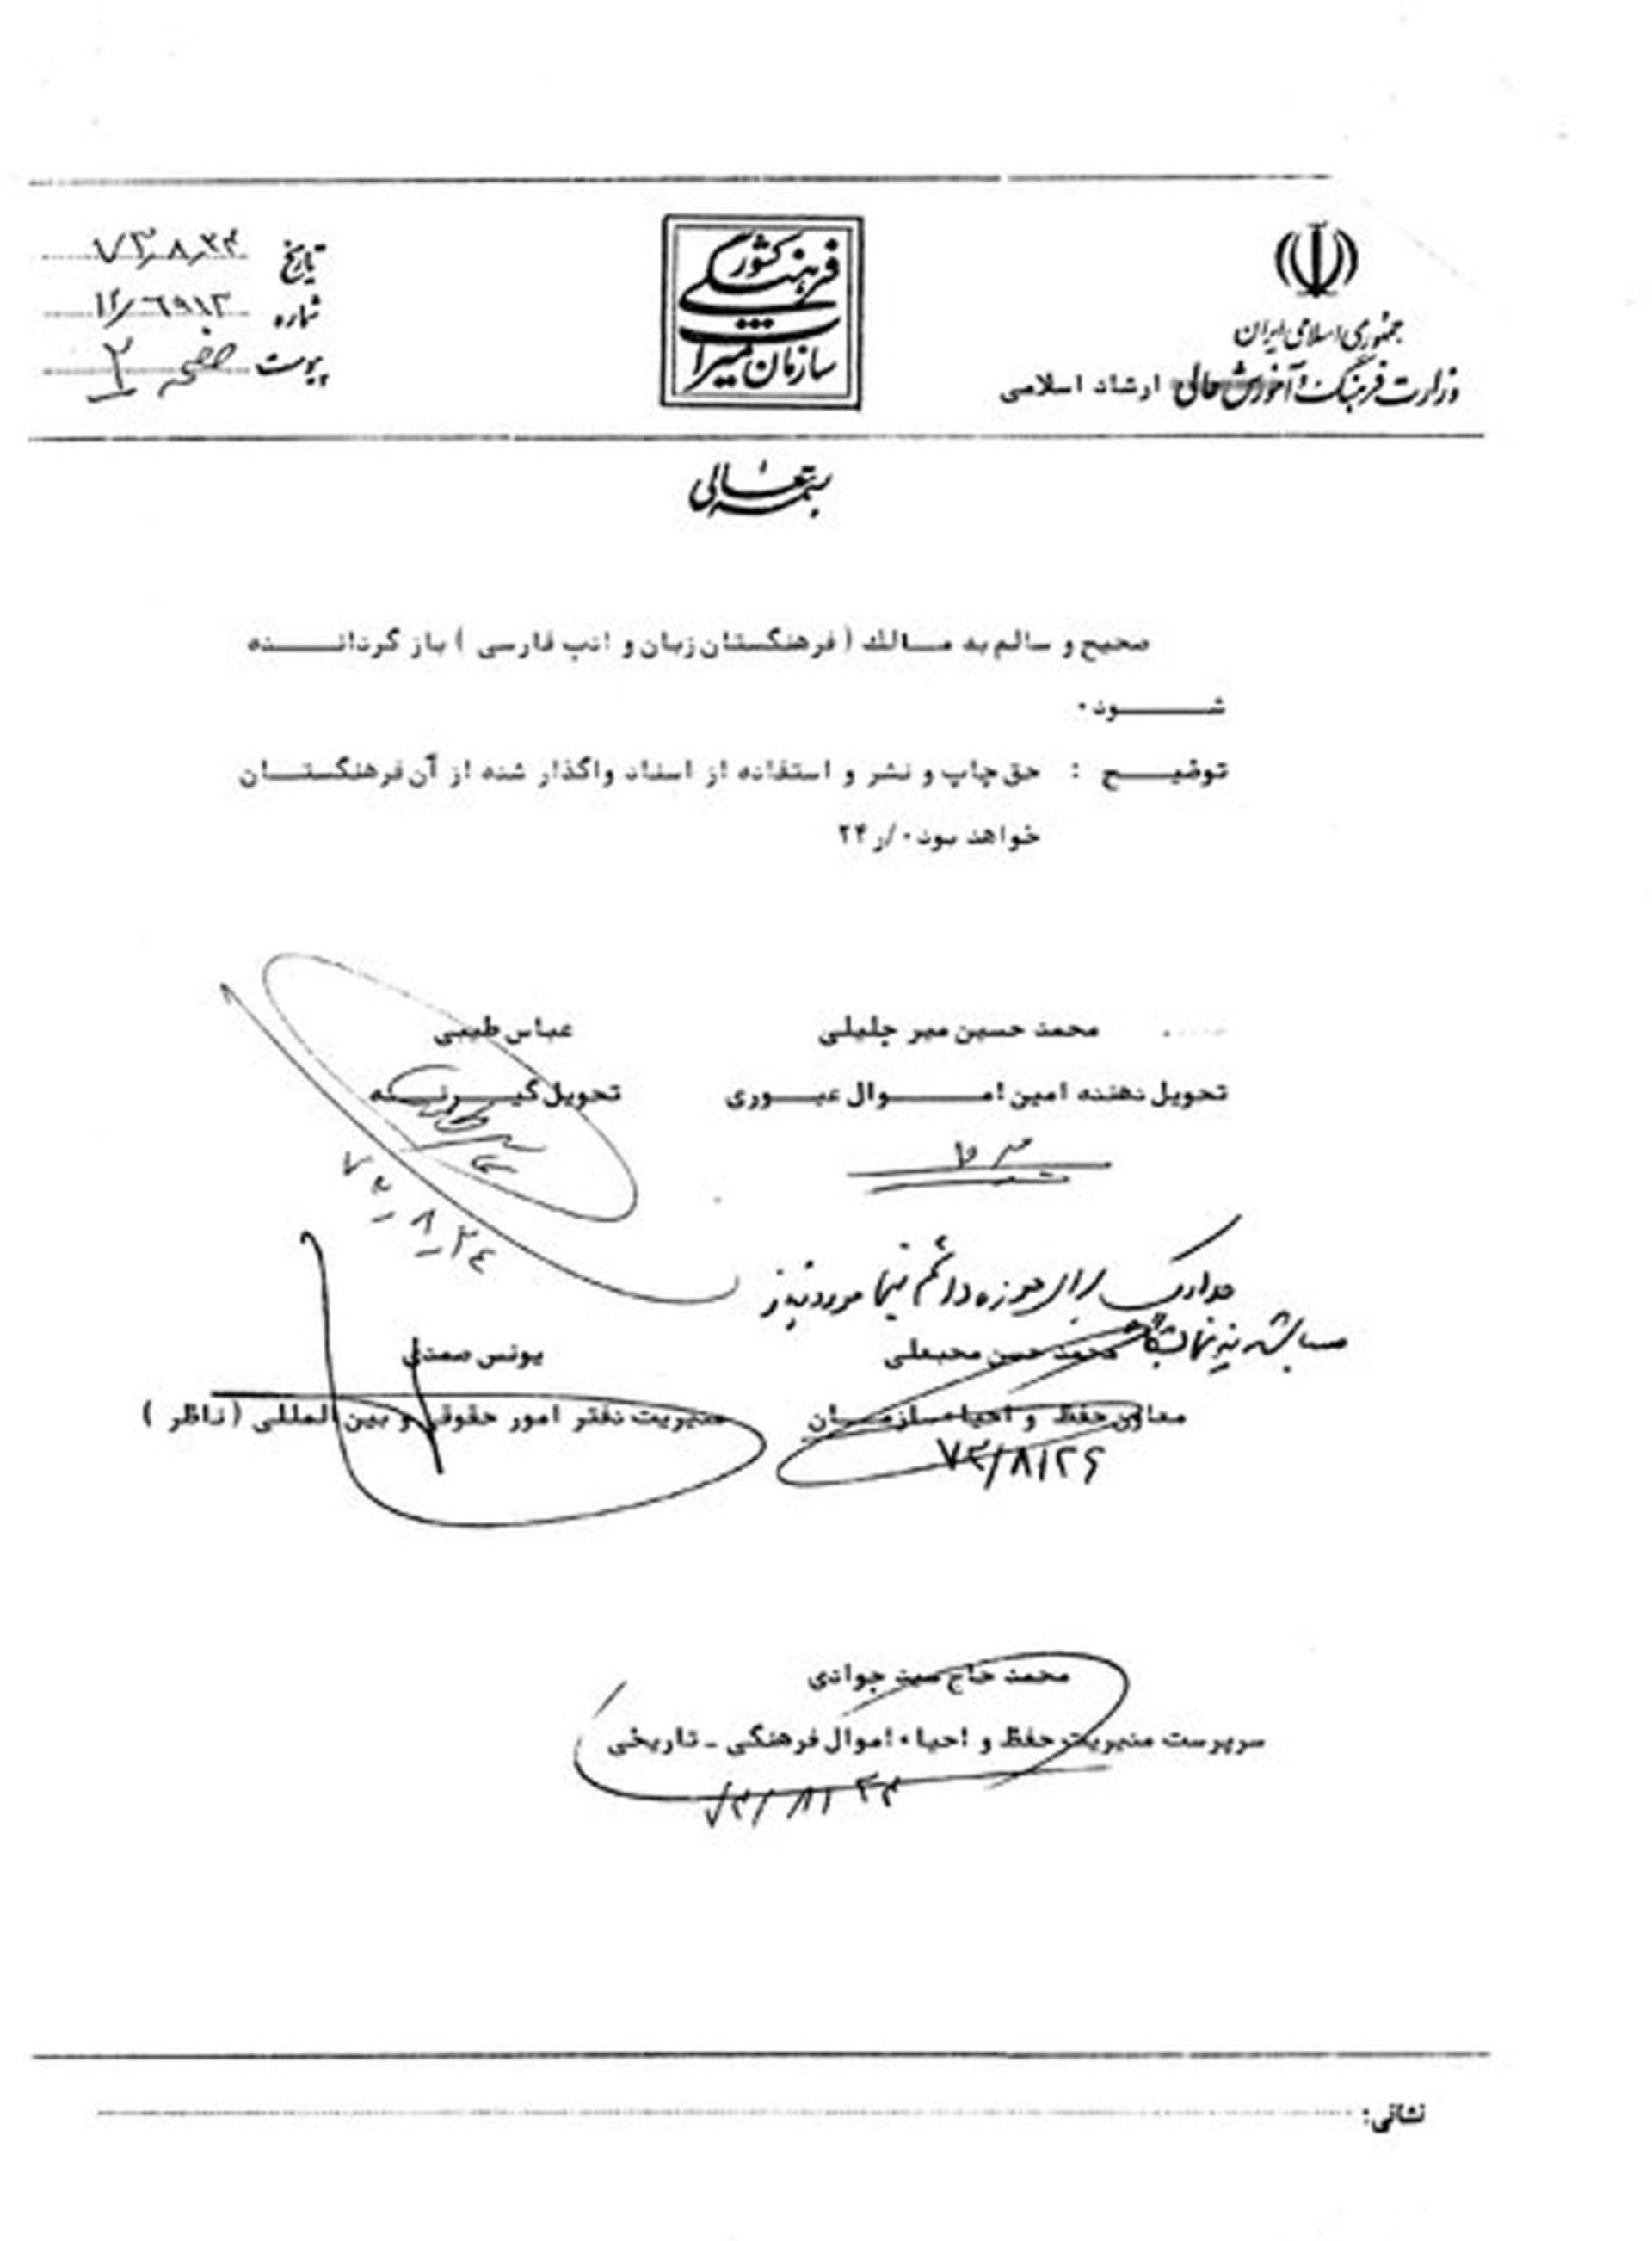 جمهوری اسلامی ایران
وزارت فرهنگ و آموزش عالی ارشاد اسلامی
سازمان میراث فرهنگی کشور
تاریخ ۷۳٫۸٫۲۴
شماره ۱۲/۶۹۱۳
پیوست صفحه ۲
بسمه تعالی
صحیح و سالم به مـــالك ( فرهنگستان زبان و ادب فارسی ) باز گردانـــــنده
شـــــــود۰
توضیــــح : حق چاپ و نشر و استفاده از اسناد واگذار شده از آن فرهنگستـــان
خواهد بود۰/ر ۲۴
محمد حسین میر جلیلی
عباس طیبی
تحویل دهنده امین امـــــــوال عبـــوری
تحویل گیـــرنـــده
۷۳_۸_۲٤
مدارک برای موزه دائم نیما مورد نیاز
محمد حسن محبعلی
یونس صمدی
معاون حفظ و احیاء سازمـــان
مدیریت دفتر امور حقوقی و بین المللی ( ناظر )
۷۳/۸/۲۶
محمد حاج سید جوادی
سرپرست مدیریت حفظ و احیاء اموال فرهنگی ـ تاریخی
۷۳/۸/۲۴
نشانی: